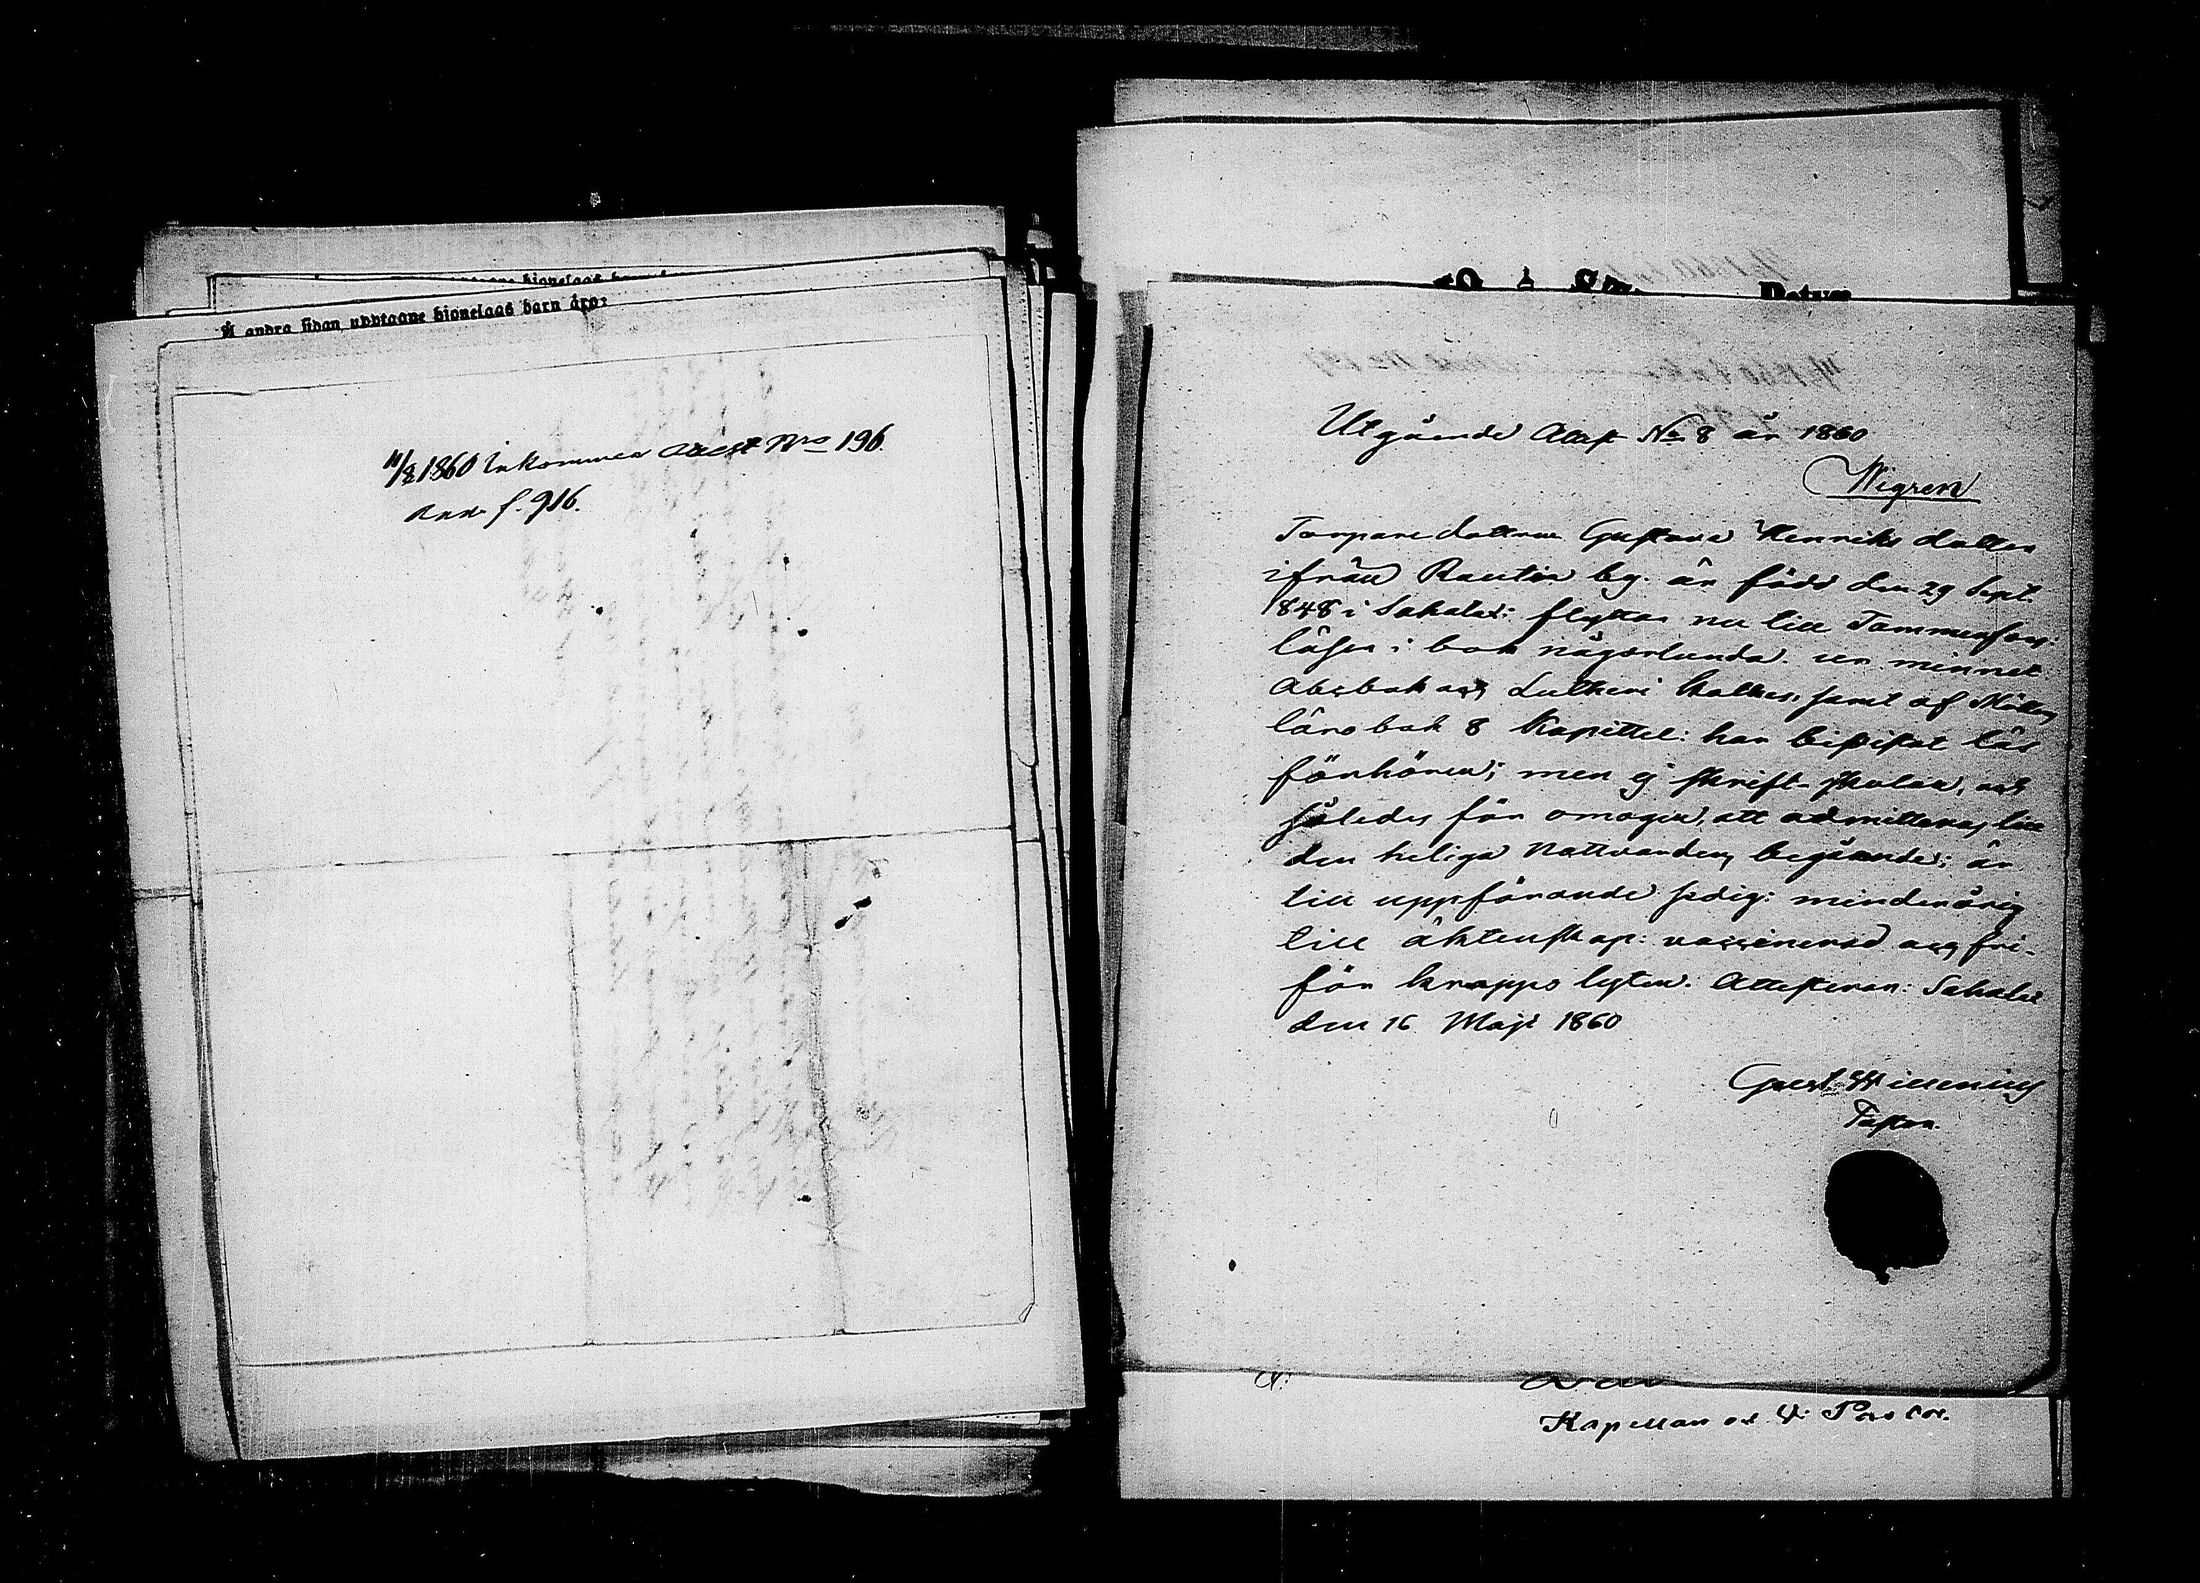 Å andra sidan upptagne hjonelags barn äro:
11/8 1860 Inkommen Attest Nro 196.
f. 916.
Utgående Attest No 8 år 1860
Wigren
Torpare dottren Gustava Henriks dotter
ifrån Rautia by. är född den 29 Sept.
1848 i Sahalax: flyttar nu till Tammerfors:
läser i bok någorlunda. ur minnet
Abcbok och Lutheri Katkes, samt af Möllers
läro bok 8 Kapittel: har bivistat läs
förhören; men ej skrift-skolan, och
således för omogen, att admitteras till
den heliga Nattvardens begående; är
till uppförande sedig: minderårig
till äktenskap: vaccinerad och fri
för kropps lyten. Attesterar: Sahalax
den 16 Maji 1860
Gust. Willenius
Pastor.
Kapellan o. V. Pastor.